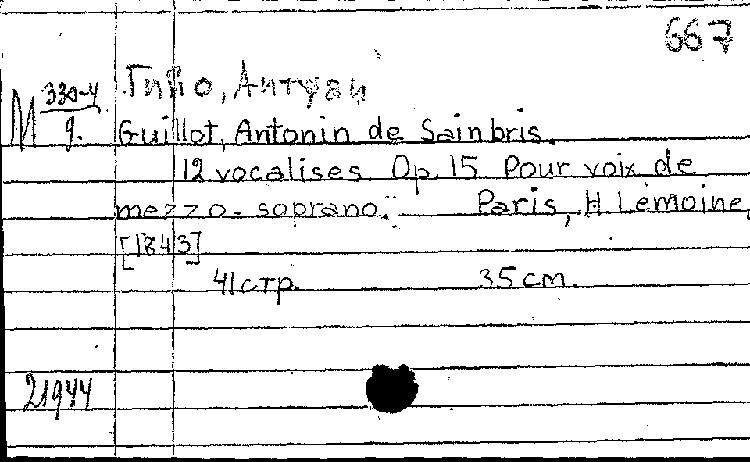 667
Гийо, Антуан
M 330-4/9. Guillot, Antonin de Sainbris.
12 vocalises Op. 15 Pour voix de
mezzo-soprano. Paris, H Lemoine,
[1843]
41 стр. 35 cm.
21944